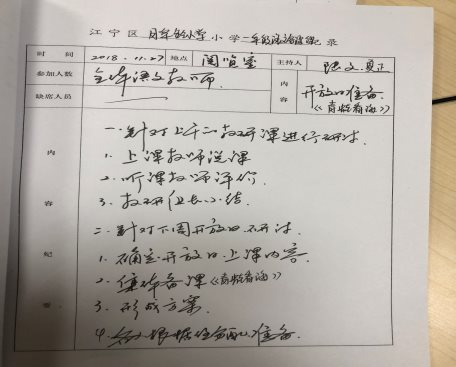 江宁区 小学二年级 记录
时间 2018.11.27 地点 阅览室 主持人
参加人数 全体语文教师 内容 开放日准备.
缺席人员 《青蛙看海》
内容纪要
一.针对上午二教研课进行研讨.
1.上课教师说课
2.听课教师评价.
3.教研组长小结
二.针对下周开放日研讨.
1.确定开放日上课内容.
2.集体备课《青蛙看海》
3.形成方案
4.各人根据分配准备.